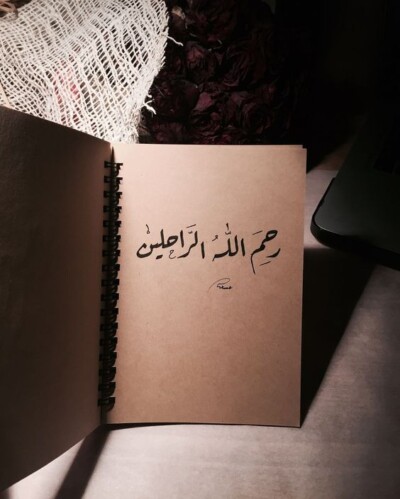 رَحِمَ اللّٰهُ الرَّاحلين